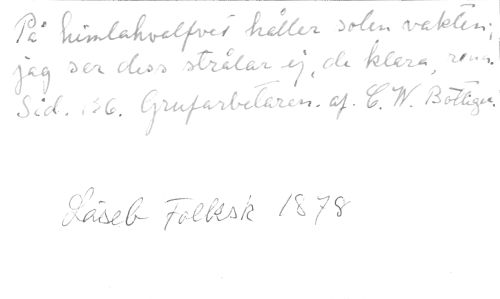 På himlahvalfvet håller solen vakten,
jag ser dess strålar ej, de klara, rena.
Sid. 136. Grufarbetaren. af. C. W. Böttiger.
Läseb Folksk 1878